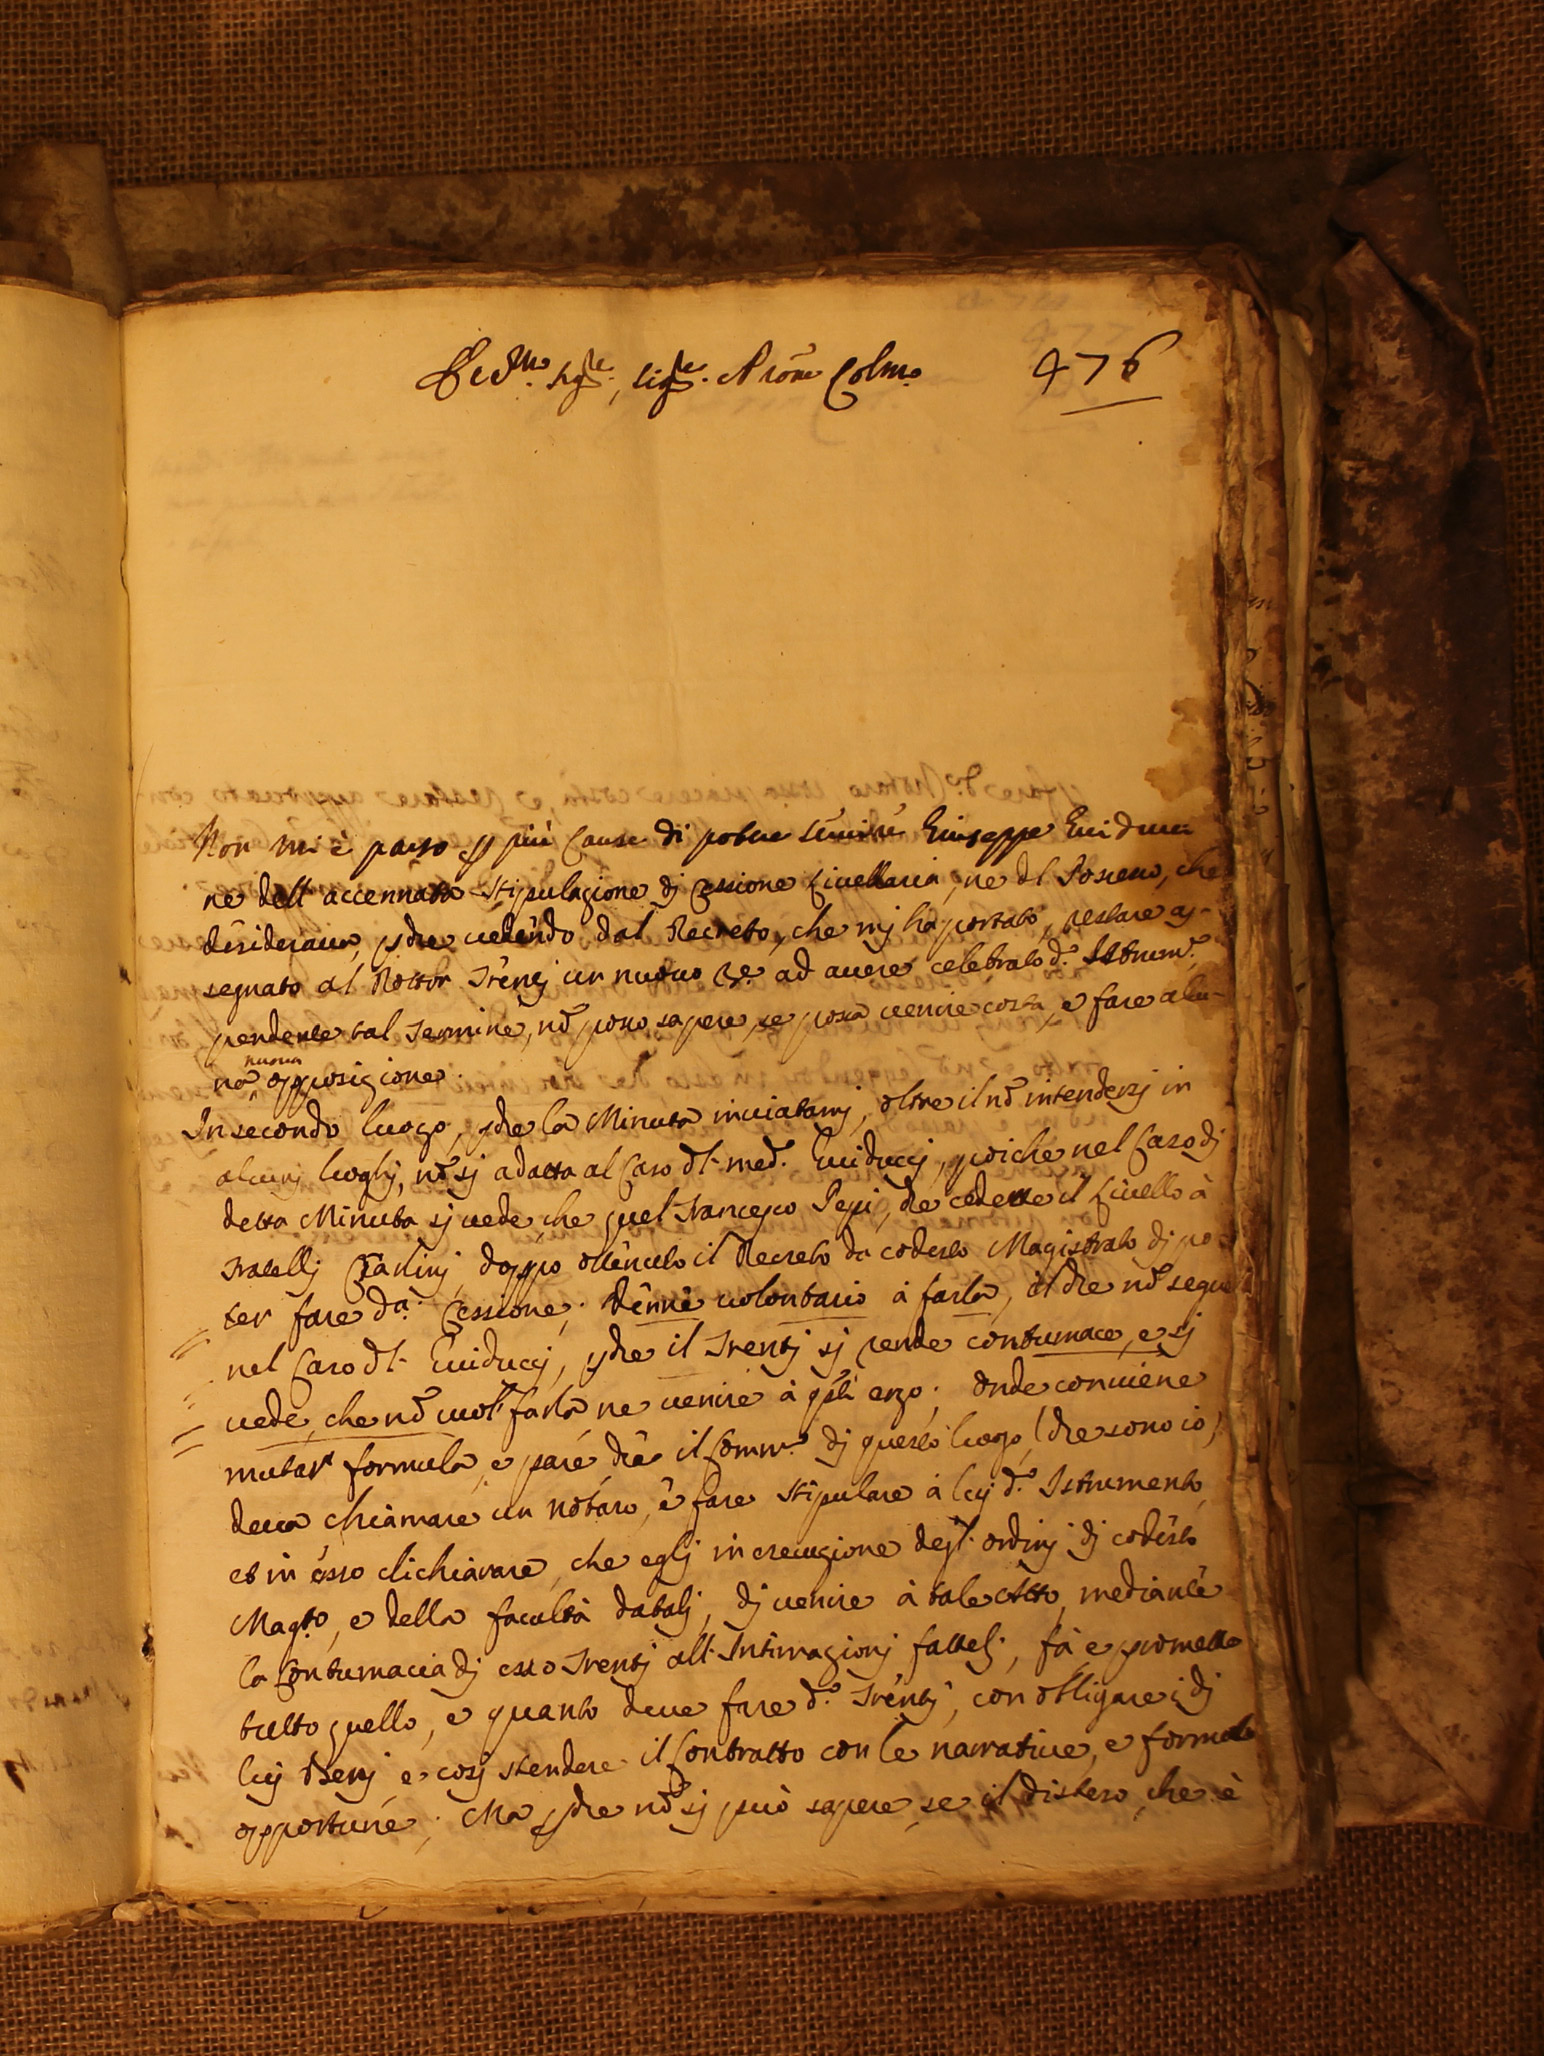 476
Non mi è parso più Cause di potere servire Giuseppe Guiducci
ne dell accennata Stipulazione dj Cessione Livellaria, ne del Possesso, che
desiderava, vedendo dal Decreto, che mj ha portato, restare as-
segnato al Dottor Trentj un nuovo ad avere celebrato d.o Istrum.to
pendente tal termine, nõ posso sapere, se possa venire costà, e fare alcu-
na nuova opposizione.
In secondo luogo, la Minuta inviatamj, oltre il nõ intendersj in
alcunj luoghj, nõ sj adatta al Caro dl med.o Guiduccj, poiche nel Caso dj
detta Minuta sj vede, che quel Francesco Pepi, che cedette il Livello à
Fratellj Carlinj, doppo ottenuto il Decreto da codesto Magistrato dj po
ter fare d.a Cessione, venne volontario à farla, il che nõ segue
nel Caso dl Guiduccj, il Trentj sj rende contumace, e sj
vede, che nõ vuol farla ne venire à erzo. Onde conviene
mutar formula, e pare che il Comm.o dj questo luogo, (che sono io)
deva chiamare un notaro, e fare stipulare à luj d.o Istrumento,
et in esso dichiarare, che eglj in esecuzione degl ordinj dj codesto
Mag.to, e della facoltà datalj, dj venire à tale Atto, mediante
la Contumacia dj esso Trentj all Intimazionj fattelj, fà e promette
tutto quello, e quanto deve fare d.o Trentj, con obligare dj
luj Benj e cosj stendere il Contratto con le narrative, e formole
opportune; Ma nõ sj può sapere, se il disteso, che è